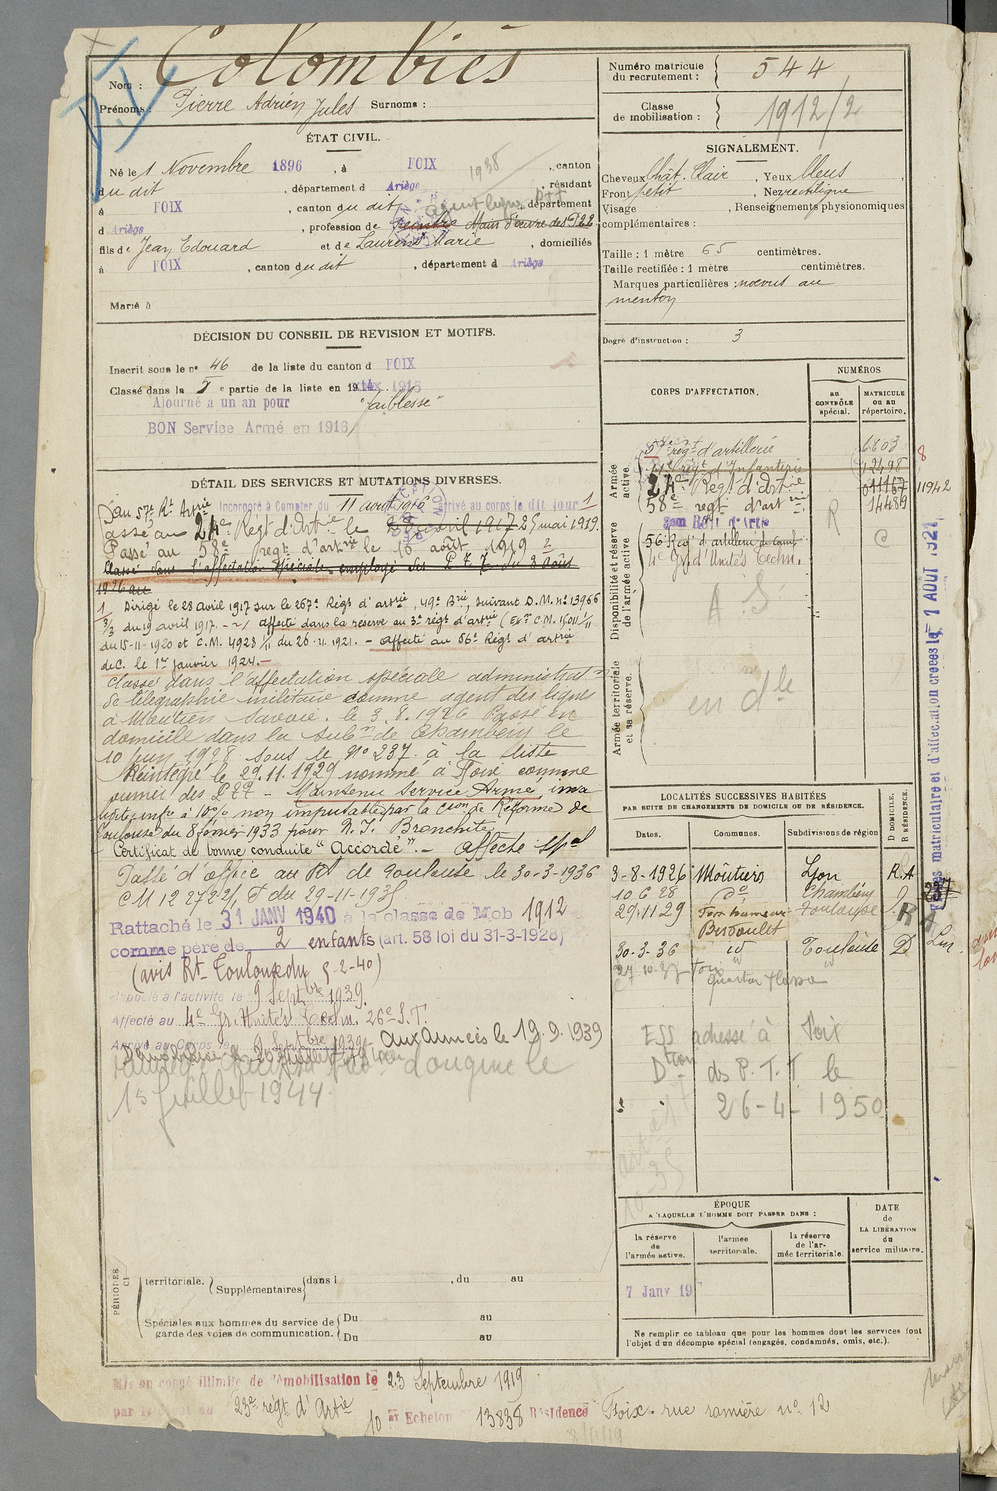 Nom : Colombiès
Prénoms : Pierre Adrien Jules Surnoms :
ÉTAT CIVIL.
Né le 1 Novembre 1896, à FOIX, canton
du dit, département d Ariège, résidant
à FOIX, canton du dit, département
d Ariège, profession de peintre Main d'œuvre des P.T.T. agent lignes PTT 1938
fils de Jean Edouard et de Laurens Marie, domiciliés
à FOIX, canton du dit, département d Ariège
Marié à
DÉCISION DU CONSEIL DE REVISION ET MOTIFS.
Inscrit sous le nº 46 de la liste du canton d FOIX
Classé dans la 5 e partie de la liste en 1915
Ajourné a un an pour "faiblesse"
BON Service Armé en 1916
DÉTAIL DES SERVICES ET MUTATIONS DIVERSES.
au 57e Rt Artrie Incorporé à Compter du 11 août 1916 Arrivé au corps le dit jour 1
Passé au 24e Régt d'Artrie le 25 mai 1919.
Passé au 58e regt d'artrie le 16 août 1919 2
Classé dans l'affectation spéciale employé des P.T.T. du 3 Août
1926 au
1 Dirigé le 28 avril 1917 sur le 267e Régt d'artrie, 49e Brie, suivant D.M. nº 13966
3/3 du 19 avril 1917. - 2/ affecté dans la réserve au 3e régt d'artrie (Exon C.M. 15011/11
du 15-11-1920 et C.M. 4923/11 du 26-11-1921. - affecté au 56e Régt d'artrie
de C. le 1er janvier 1924. -
Classé dans l'affectation spéciale administrat°
de télégraphie militaire comme agent des lignes
à Moutiers Savoie. le 3.8.1926 Passé en
domicile dans la subon de Chambéry le
10 juin 1928 sous le Nº 237 à la liste
Réintégré le 29.11.1929 nommé à Foix comme
ouvrier des PTT - Maintenu Service Armé, inva
lidité infre à 10% non imputable par la Cion de Réforme de
Toulouse du 8 février 1933 pour N.I. Bronchite.
Certificat de bonne conduite "Accordé". - Affecté spal
Passé d'office au Rt de Toulouse le 30-3-1936
CM 12272 du 29-11-1935
Rattaché le 31 JANV 1940 à la classe de Mob 1912
comme père de 2 enfants (art. 58 loi du 31-3-1928)
(avis Rt Toulouse du 5-2-40)
Rappelé à l'activité le 9 Septbre 1939.
Affecté au 4e Gr. Unités Techn. 26e S.T.
Arrivé au Corps le 9 Septbre 1939 Aux Armées le 19.9.1939
d'origine le
15 Juillet 1944.
PÉRIODES
territoriale. Supplémentaires dans l , du au
Spéciales aux hommes du service de garde des voies de communication. Du au
Du au
Mis en congé illimité de démobilisation le 23 Septembre 1919
par le 23e régt d'Artie 10 er Echelon 13838 Résidence Foix. rue ramière nº 12
Numéro matricule du recrutement : 544
Classe de mobilisation : 1912/2
SIGNALEMENT.
Cheveux chât. clair, Yeux bleus,
Front petit, Nez rectiligne
Visage , Renseignements physionomiques
complémentaires :
Taille : 1 mètre 65 centimètres.
Taille rectifiée : 1 mètre centimètres.
Marques particulières : noevus au
menton
Degré d'instruction : 3
CORPS D'AFFECTATION.
NUMÉROS
au CONTRÔLE spécial.
MATRICULE ou au répertoire.
Armée active.
57e régt d'artillerie 6603
régt d'Infanterie 12498
24e Régt d'Artie 01167 11942
58e regt d'artrie 14489
Disponibilité et réserve de l'armée active.
56e Régt d'artillerie de Camp.
4e Gr. d'Unités Techn.
R
C
A S
Armée territoriale et sa réserve.
en dle
matriculaire et d'affectation créées le 1 AOUT 1927
LOCALITÉS SUCCESSIVES HABITÉES
PAR SUITE DE CHANGEMENTS DE DOMICILE OU DE RÉSIDENCE.
Dates. Communes. Subdivisions de région D DOMICILE. R RÉSIDENCE.
3-8-1926 Moûtiers Lyon R.A
10.6.28 do Chambéry D. 237
29.11.29 Foix Toulouse RA
30-3-36 id Toulouse D
27-10-37 Foix
ESS adressé à Foix
Dtion des P.T.T. le
26-4-1950
ÉPOQUE
A LAQUELLE L'HOMME DOIT PASSER DANS :
la réserve de l'armée active.
l'armée territoriale.
la réserve de l'armée territoriale.
DATE de LA LIBÉRATION du service militaire.
7 Janv 19
Ne remplir ce tableau que pour les hommes dont les services font
l'objet d'un décompte spécial (engagés, condamnés, omis, etc.).